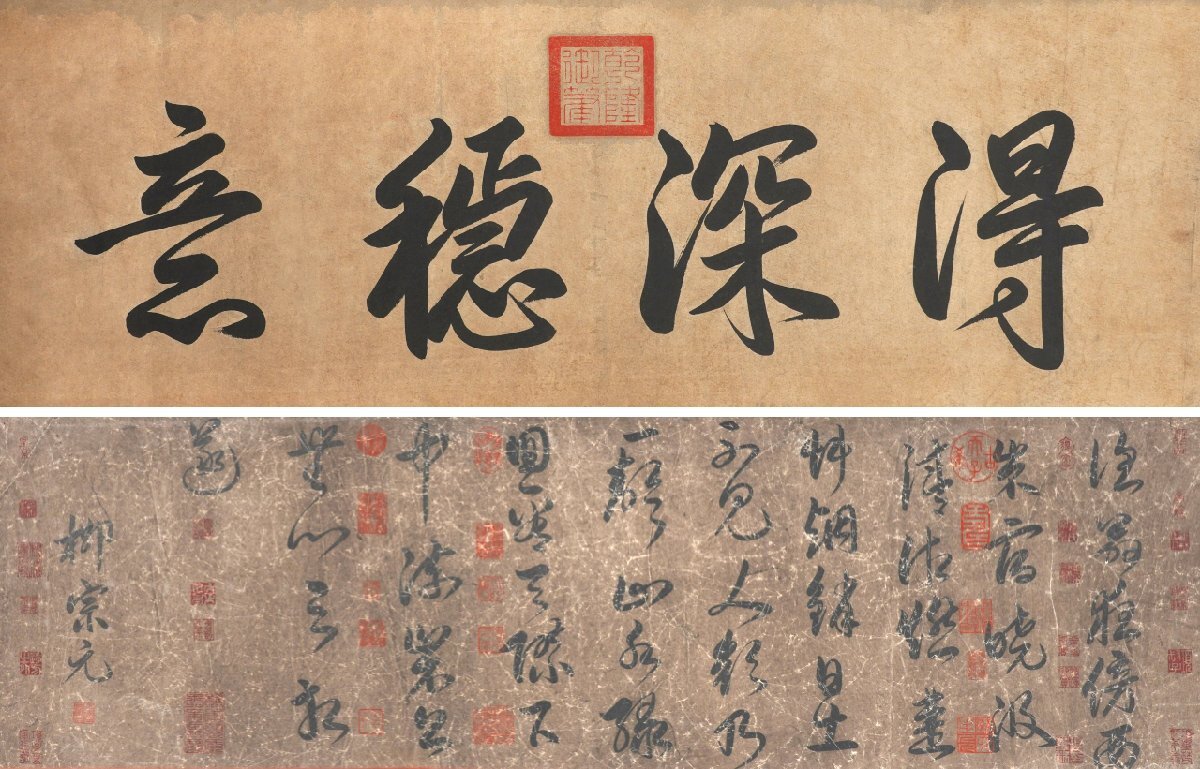 得深穩意
乾隆御筆
漁翁夜傍西
岩宿曉汲
清湘燃楚
竹烟銷日出
不見人欸乃
一聲山水綠
回看天際下
中流岩上
無心雲相
逐
柳宗元